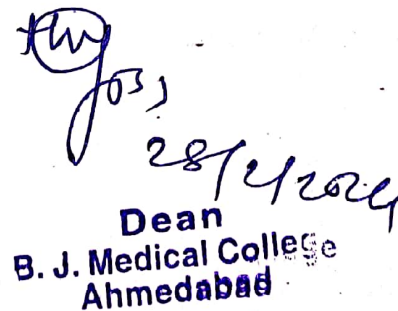 28/2/2024
Dean
B. J. Medical College
Ahmedabad